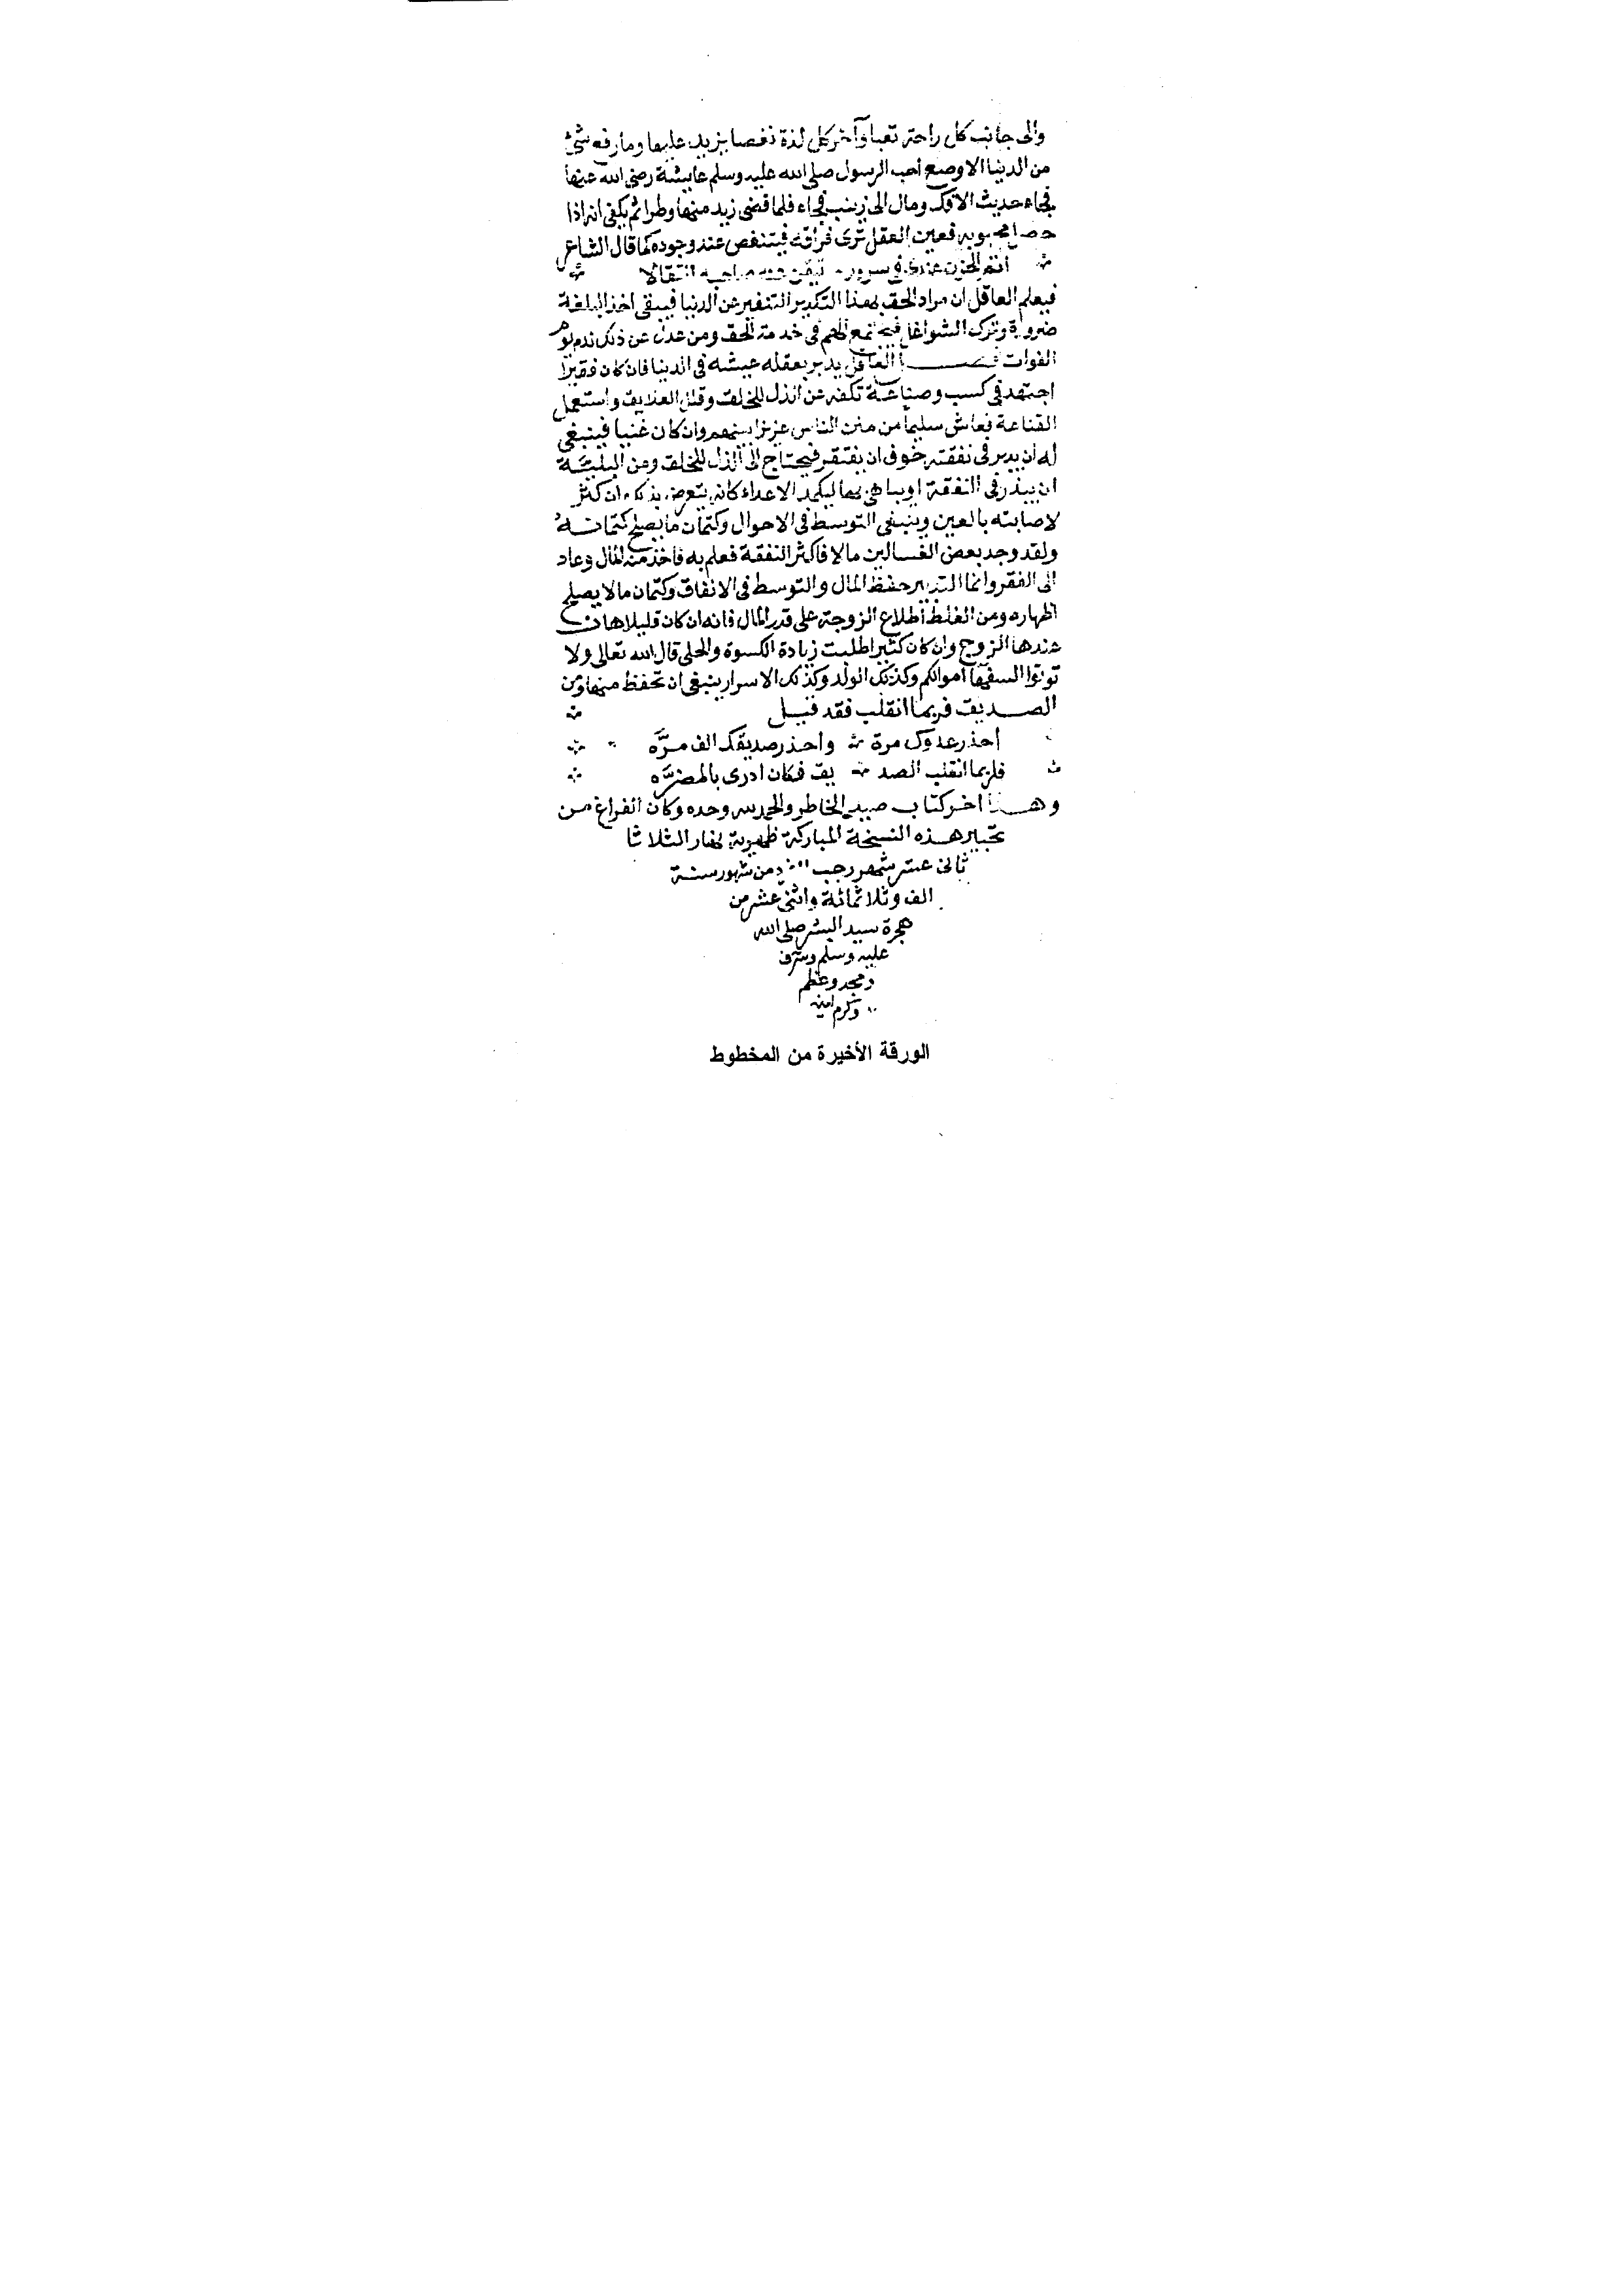 والى جانب كل راحة تعبا وآخر كل لذة نغصا يزيد عليها وما رفع شئ
من الدنيا الا وضع احب الرسول صلى الله عليه وسلم عايشة رضى الله عنها
فجاء حديث الافك ومال الى زينب فجاء فلما قضى زيد منها وطرا ثم يكفى انه اذا
حصل محبوبه فعين العقل ترى فراقه فيتنغص عند وجوده كما قال الشاعر
اشد الحزن عندى فى سرور تيقن عنه صاحبه انتقالا
فيعلم العاقل ان مراد الحق بهذا التكدير التنفير عن الدنيا فيبقى اخذ البلغة
ضرورة وترك الشواغل فيجتمع الهم فى خدمة الحق ومن عدل عن ذلك ندم
الفوات فصل العاقل يدبر بعقله عيشه فى الدنيا فان كان فقيرا
اجتهد فى كسب وصناعة تكفه عن الذل للخلق وقلل العلايق واستعمل
القناعة فعاش سليما من منن الناس عزيزا بينهم وان كان غنيا فينبغى
له ان يدبر فى نفقته خوف ان يفتقر فيحتاج الى الذل للخلق ومن البليئة
ان يبذر فى النفقة او يباهى بها ليكمد الاعداء كانه يتعرض بذلك ان كثر
لاصابته بالعين وينبغى التوسط فى الاحوال وكتمان ما يصلح كتمانه
ولقد وجد بعض الغسالين مالا فاكثر النفقة فعلم به فاخذ منه المال وعاد
الى الفقر وانما التدبير حفظ المال والتوسط فى الانفاق وكتمان مالا يصلح
اظهاره ومن الغلط اطلاع الزوجة على قدر المال فانه ان كان قليلا هان
عندها الزوج وان كان كثيرا طلبت زيادة الكسوة والحلى قال الله تعالى ولا
توتوا السفهآ اموالكم وكذلك الولد وكذلك الاسرار ينبغى ان تحفظ منها ومن
الصديق فربما انقلب فقد قيل
احذر عدوك مرة واحذر صديقك الف مرّه
فلربما انقلب الصد يق فكان ادرى بالمضرّه
وهذا اخر كتاب صيد الخاطر والحمد لله وحده وكان الفراغ من
تحبير هذه النسخة المباركة ظهيرة نهار الثلاثا
ثانى عشر شهر رجب من شهور سنة
الف وثلاثمائة واثنى عشر من
هجرة سيد البشر صلى الله
عليه وسلم وشرف
ومجد وعظم
وكرم امين
الورقة الأخيرة من المخطوط